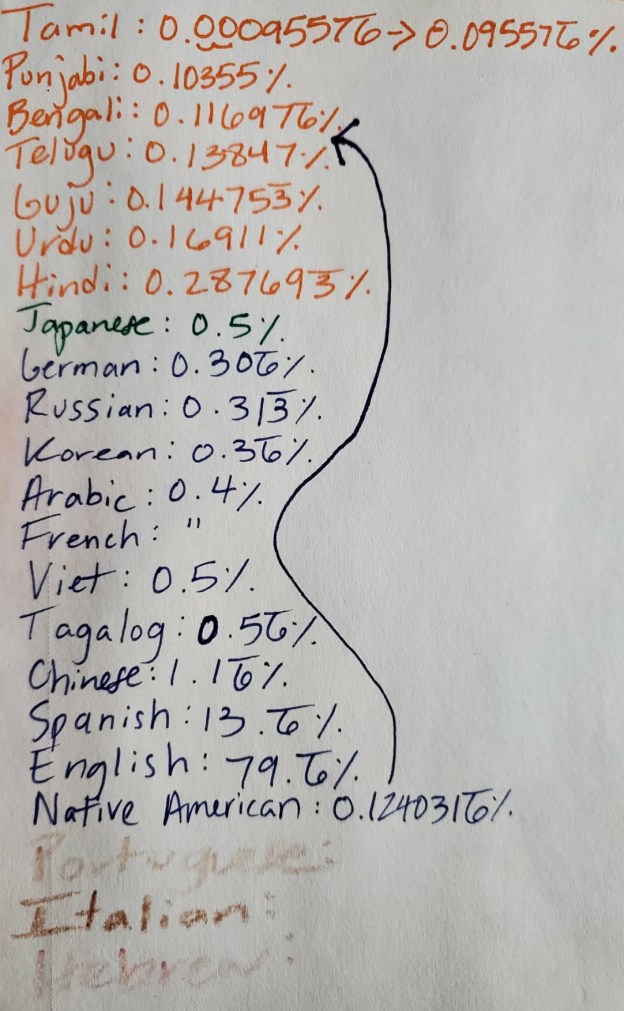 Tamil : 0.00095576̅ -> 0.095576̅ %.
Punjabi: 0.10355%.
Bengali: 0.116976̅%.
Telugu: 0.13847%.
Guju: 0.144753̅%.
Urdu: 0.16911%.
Hindi: 0.287693̅%.
Japanese: 0.5%.
German: 0.306̅%.
Russian: 0.313̅%.
Korean: 0.36̅%.
Arabic: 0.4%.
French: "
Viet: 0.5%.
Tagalog: 0.56̅%.
Chinese: 1.16̅%.
Spanish: 13.6̅%.
English: 79.6̅%.
Native American: 0.1240316̅%.
Portuguese:
Italian:
Hebrew: